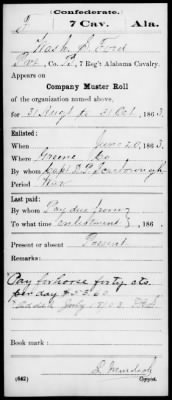 Confederate.
7 Cav. Ala.
Nash J. Ford
Pvt, Co. B, 7 Reg't Alabama Cavalry.
Appears on
Company Muster Roll
of the organization named above,
for 31 Augt to 31 Oct, 1863.
Enlisted:
When June 20, 1863.
Where Greene Co
By whom Capt
Period War
Last paid:
By whom Pay due from
To what time enlistment, 186 .
Present or absent Present
Remarks:
Pay for horse forty cts
per day $53.60
July 1863.
Book mark:
(642) Copyist.